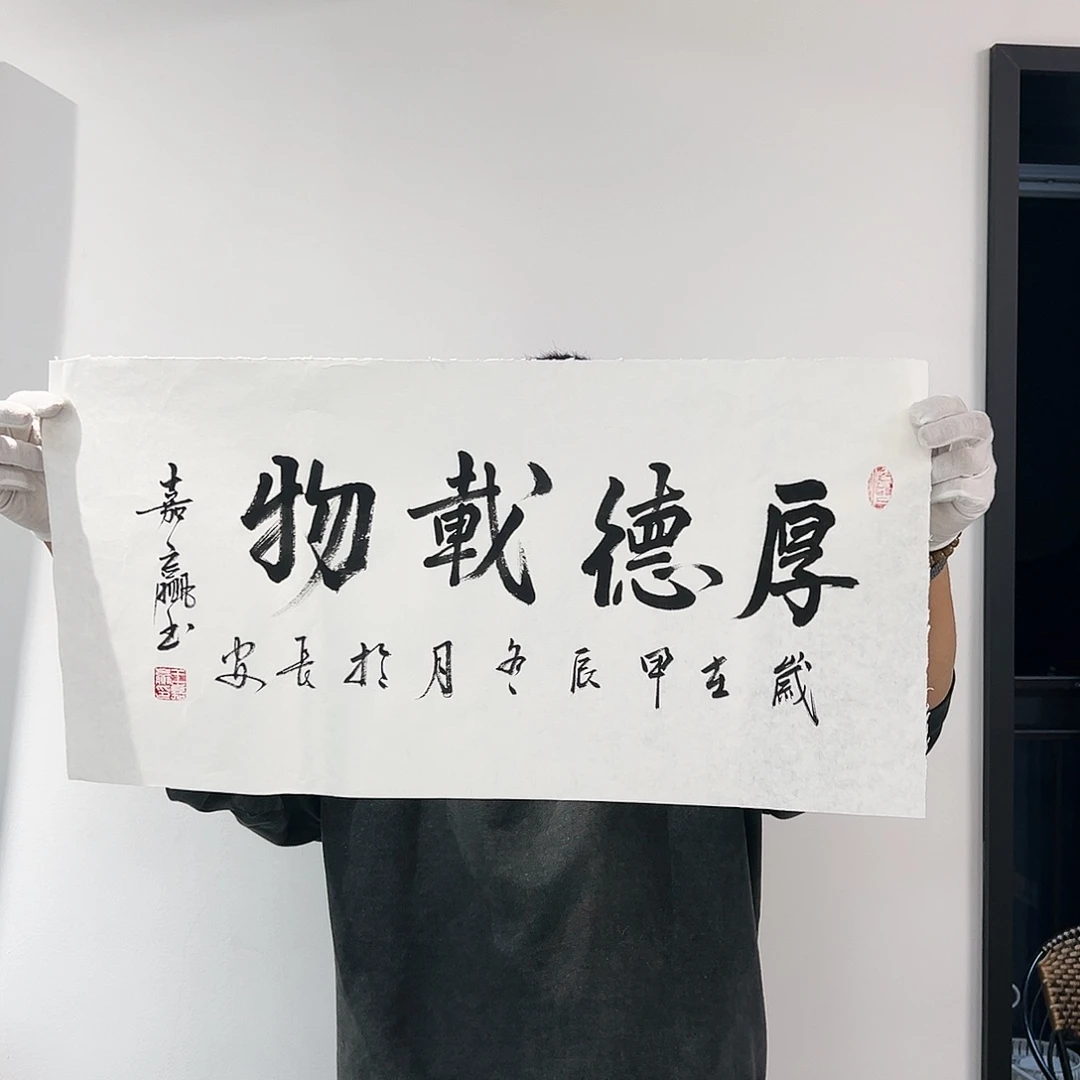 厚德載物
歲在甲辰冬月於長安
嘉贏書